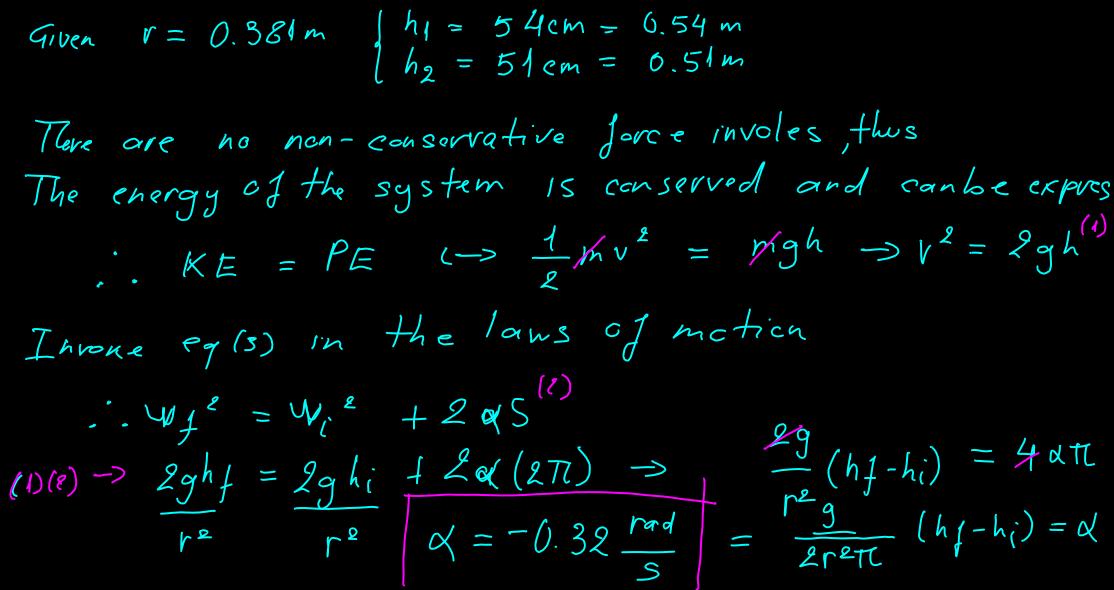 Given r = 0.381m { h₁ = 54cm = 0.54 m
h₂ = 51cm = 0.51m
There are no non-conservative force involes, thus
The energy of the system is conserved and canbe expres
∴ KE = PE ↔ 1/2 mv² = mgh → v² = 2gh (1)
Invoke eq(3) in the laws of motion
∴ ω_f² = ω_i² + 2αS (2)
(1)(2) → 2gh_f/r² = 2gh_i/r² + 2α(2π) → 2g/r² (h_f-h_i) = 4απ
α = -0.32 rad/s = g/2r²π (h_f-h_i) = α